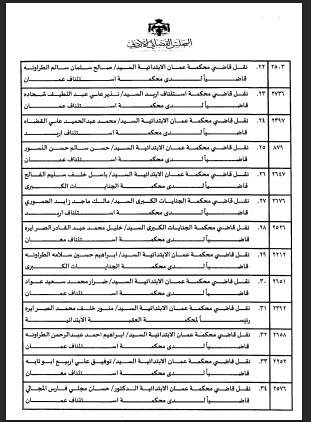 المجلس القضائي الأردني
٢٥٠٣ ٢٢. نقل قاضي محكمة عمان الابتدائية السيد/ صالح سلمان سالم الطراونه
قاضياً لدى محكمة استئناف عمان
٢٧٣٦ ٢٣. نقل قاضي محكمة استئناف اربد السيد/ نذير علي عبد اللطيف شحاده
قاضياً لدى محكمة استئناف عمان
٢٣٩٧ ٢٤. نقل قاضي محكمة عمان الابتدائية السيد/ محمد عبدالحميد علي القضاه
قاضياً لدى محكمة استئناف اربد
٨٧٩ ٢٥. نقل قاضي محكمة عمان الابتدائية السيد/ حسن سالم حسن النسور
قاضياً لدى محكمة استئناف عمان
٢٦٤٧ ٢٦. نقل قاضي محكمة عمان الابتدائية السيد/ باسل خلف سليم الفالح
قاضياً لدى محكمة الجنايات الكبرى
٢٦٧٦ ٢٧. نقل قاضي محكمة الجنايات الكبرى السيد/ مالك ماجد زايد الحموري
قاضياً لدى محكمة استئناف اربد
٢٥٢٦ ٢٨. نقل قاضي محكمة الجنايات الكبرى السيد/ خليل محمد عبد القادر الصرايره
قاضياً لدى محكمة استئناف معان
٢٢١٢ ٢٩. نقل قاضي محكمة عمان الابتدائية السيد/ ابراهيم حسين سلامه الطراونه
قاضياً لدى محكمة الجنايات الكبرى
٢٦٥١ ٣٠. نقل قاضي محكمة عمان الابتدائية السيد/ ضرار محمد سعيد عواد
قاضياً لدى محكمة استئناف عمان
٢٣٩٢ ٣١. نقل قاضي محكمة عمان الابتدائية السيد/ منور خلف محمد الصرايره
رئيساً لمحكمة العقبة الابتدائية
٢٦٥٨ ٣٢. نقل قاضي محكمة عمان الابتدائية السيد/ ابراهيم احمد عبدالرحمن الطراونه
قاضياً لدى محكمة استئناف عمان
٢٢٥٢ ٣٣. نقل قاضي محكمة عمان الابتدائية السيد/ توفيق علي اربيع ابو تايه
قاضياً لدى محكمة استئناف معان
٢٥٧٦ ٣٤. نقل قاضي محكمة عمان الابتدائية الدكتور/ حسان مجلي فارس المجالي